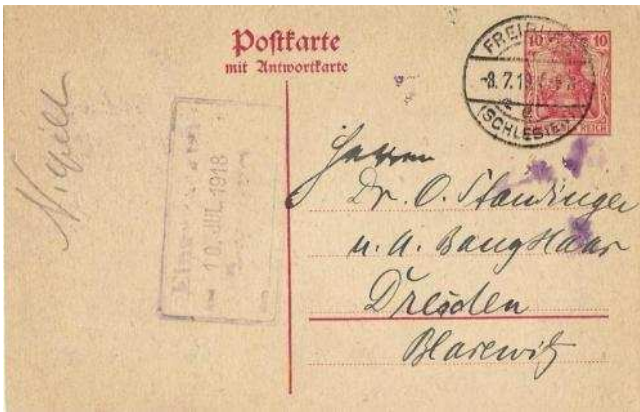 Postkarte
mit Antwortkarte
10 10
REICH
FREIBURG
-8.7.18
(SCHLESIEN)
10. JUL. 1918
Herren
Dr. O. Staudinger
u. A. Bang Haas
Dresden
Blasewitz